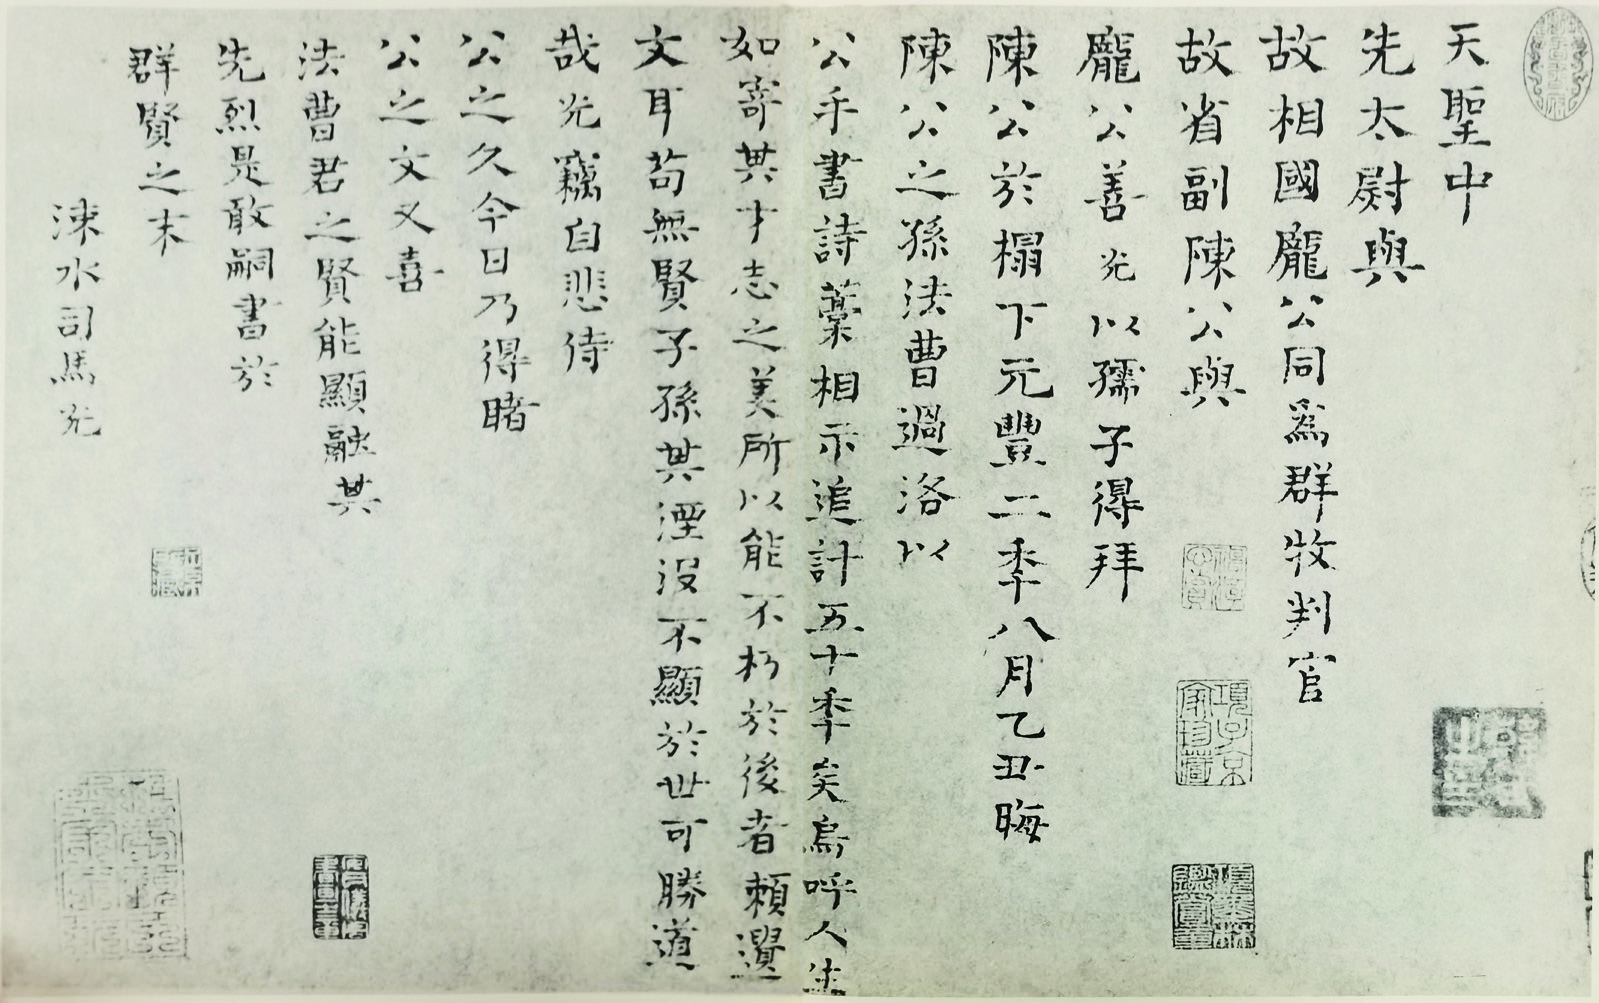 天聖中
先太尉與
故相國龐公同爲群牧判官
故省副陳公與
龐公善光以孺子得拜
陳公於榻下元豐二季八月乙丑晦
陳公之孫法曹過洛以
公手書詩藁相示追計五十季矣烏呼人生
如寄其才志之美所以能不朽於後者賴遺
文耳苟無賢子孫其湮沒不顯於世可勝道
哉光竊自悲侍
公之久今日乃得睹
公之文又喜
法曹君之賢能顯融其
先烈是敢嗣書於
群賢之末
涑水司馬光
項子京
家珍藏